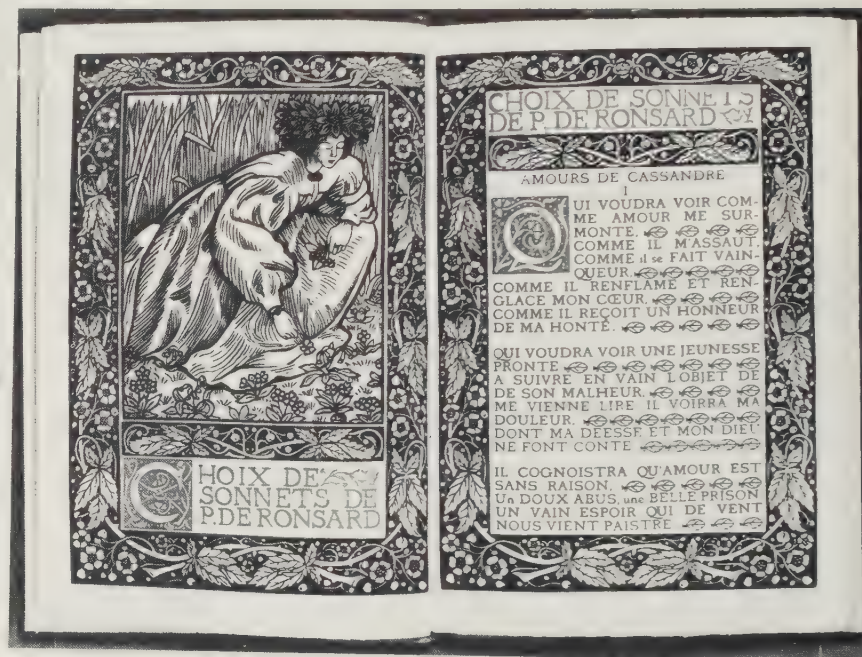 CHOIX DE
SONNETS DE
P. DE RONSARD
CHOIX DE SONNETS
DE P. DE RONSARD
AMOURS DE CASSANDRE
I
QUI VOUDRA VOIR COM-
ME AMOUR ME SUR-
MONTE,
COMME IL M'ASSAUT,
COMME il se FAIT VAIN-
QUEUR,
COMME IL RENFLAME ET REN-
GLACE MON CŒUR,
COMME IL REÇOIT UN HONNEUR
DE MA HONTE.
QUI VOUDRA VOIR UNE JEUNESSE
PRONTE
A SUIVRE EN VAIN L'OBJET DE
DE SON MALHEUR,
ME VIENNE LIRE IL VOIRRA MA
DOULEUR,
DONT MA DEESSE ET MON DIEU
NE FONT CONTE
IL COGNOISTRA QU'AMOUR EST
SANS RAISON,
Un DOUX ABUS, une BELLE PRISON
UN VAIN ESPOIR QUI DE VENT
NOUS VIENT PAISTRE